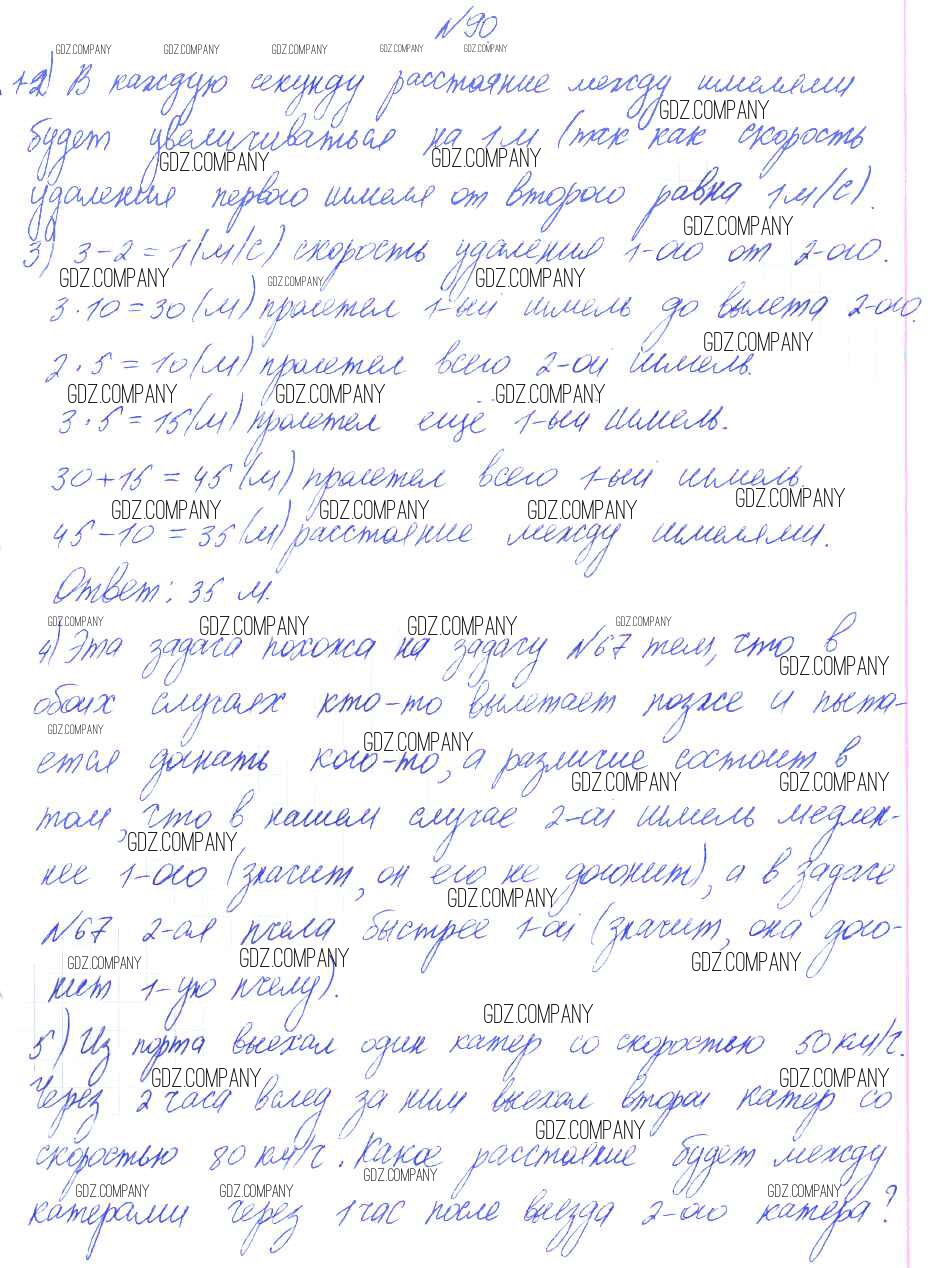 №90
GDZ.COMPANY GDZ.COMPANY GDZ.COMPANY GDZ.COMPANY GDZ.COMPANY
1-2) В каждую секунду расстояние между шмелями
GDZ.COMPANY
будет увеличиваться на 1 м (так как скорость
GDZ.COMPANY GDZ.COMPANY
удаления первого шмеля от второго равна 1 м/с).
GDZ.COMPANY
3) 3-2=1(м/с) скорость удаления 1-ого от 2-ого.
GDZ.COMPANY GDZ.COMPANY GDZ.COMPANY
3·10=30(м) пролетел 1-ый шмель до вылета 2-ого.
GDZ.COMPANY
2·5=10(м) пролетел всего 2-ой шмель.
GDZ.COMPANY GDZ.COMPANY GDZ.COMPANY
3·5=15(м) пролетел ещё 1-ый шмель.
30+15=45(м) пролетел всего 1-ый шмель.
GDZ.COMPANY GDZ.COMPANY GDZ.COMPANY GDZ.COMPANY
45-10=35(м) расстояние между шмелями.
Ответ: 35 м.
GDZ.COMPANY GDZ.COMPANY GDZ.COMPANY GDZ.COMPANY
4) Эта задача похожа на задачу №67 тем, что в
GDZ.COMPANY
обоих случаях кто-то вылетает позже и пыта-
GDZ.COMPANY GDZ.COMPANY
ется догнать кого-то, а различие состоит в
GDZ.COMPANY GDZ.COMPANY
том, что в нашем случае 2-ой шмель медлен-
GDZ.COMPANY
нее 1-ого (значит, он его не догонит), а в задаче
GDZ.COMPANY
№67 2-ая пчела быстрее 1-ой (значит, она дого-
GDZ.COMPANY GDZ.COMPANY GDZ.COMPANY
нит 1-ую пчелу).
GDZ.COMPANY
5) Из порта выехал один катер со скоростью 50 км/ч.
GDZ.COMPANY GDZ.COMPANY
Через 2 часа вслед за ним выехал второй катер со
GDZ.COMPANY
скоростью 80 км/ч. Какое расстояние будет между
GDZ.COMPANY GDZ.COMPANY GDZ.COMPANY GDZ.COMPANY
катерами через 1 час после выезда 2-ого катера?